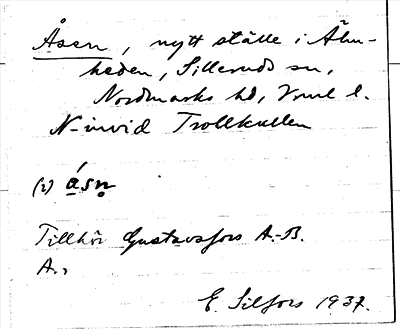 Åsen, nytt ställe i Åhn-
heden, Silleruds sn,
Nordmarks hd, Vrml l.
N-invid Trollkullen
(2) á̱sn̥
Tillhör Gustavsfors A.-B.
A.,
E. Silfors 1937.